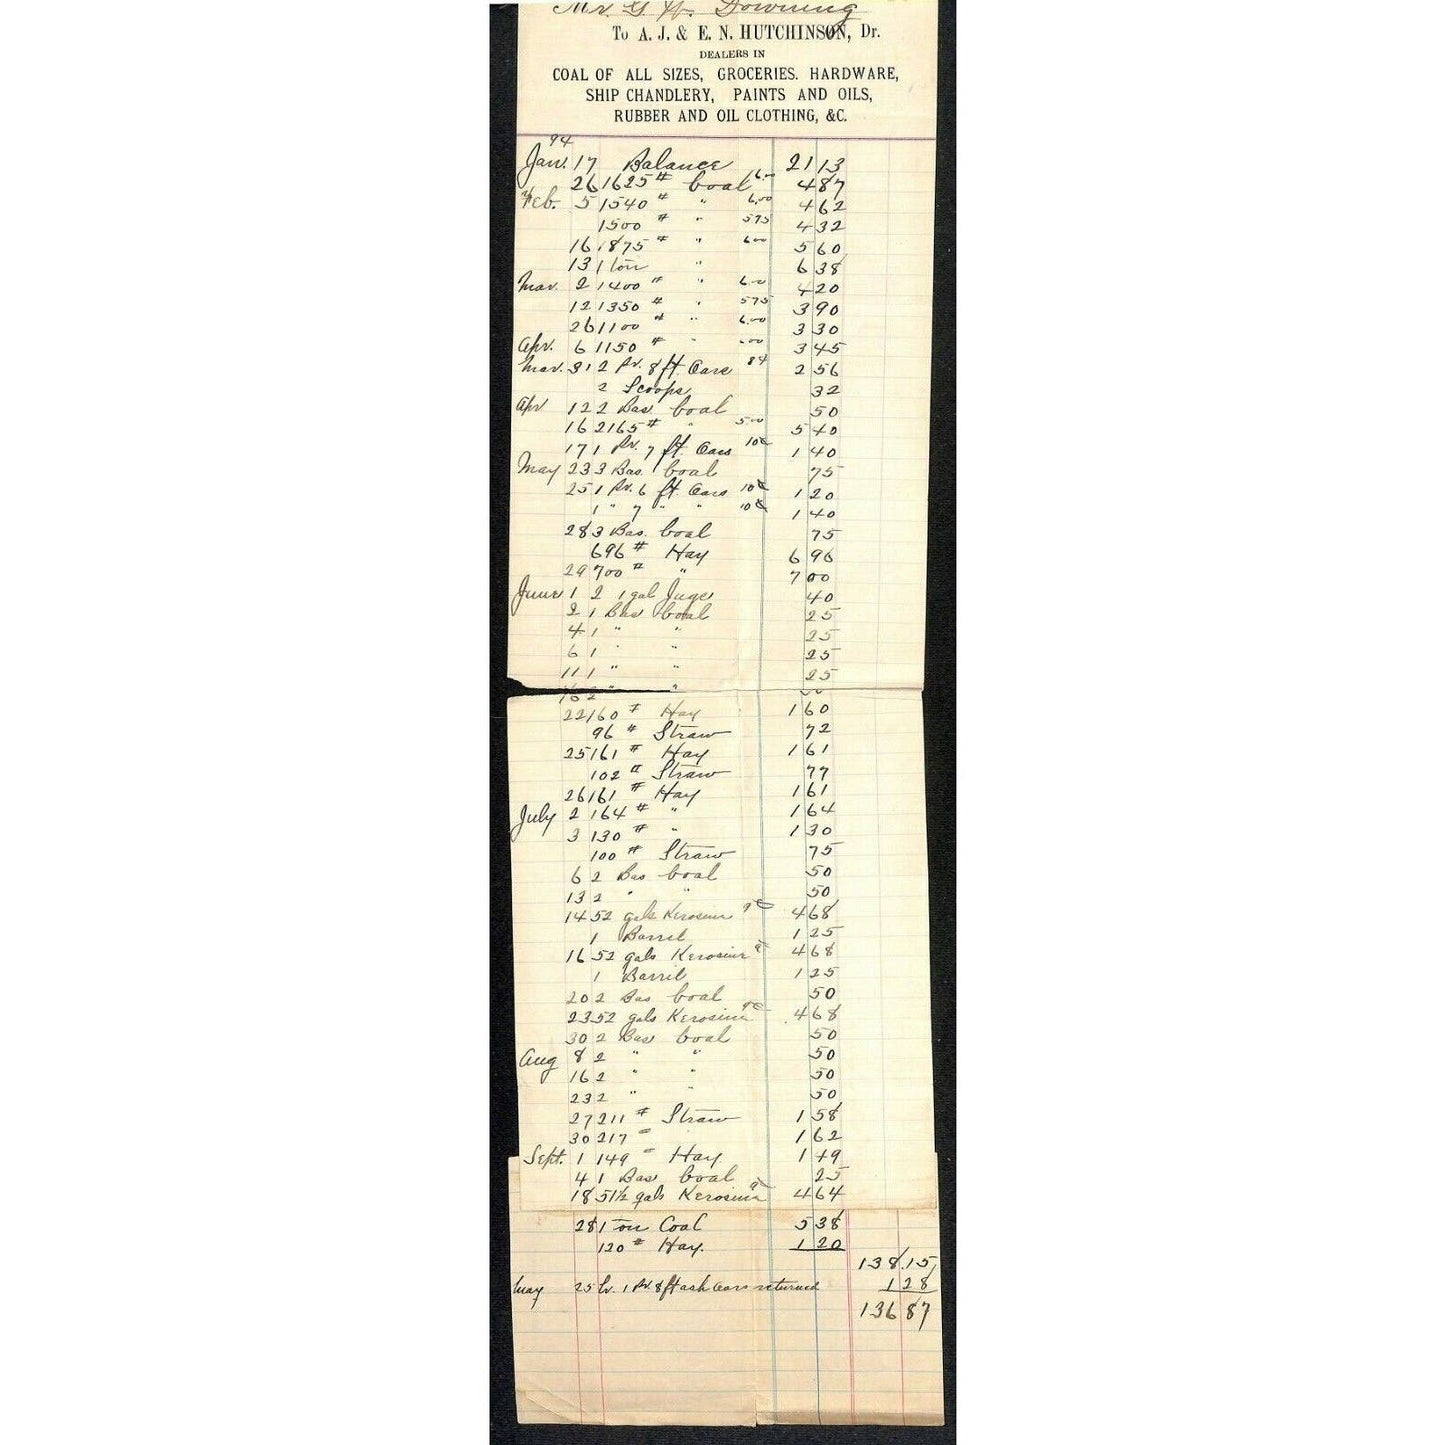 Mr. G W. Downing
To A. J. & E. N. HUTCHINSON, Dr.
DEALERS IN
COAL OF ALL SIZES, GROCERIES. HARDWARE,
SHIP CHANDLERY, PAINTS AND OILS,
RUBBER AND OIL CLOTHING, &C.
94
Jan. 17 Balance 21 13
26 1625 # Coal 6.00 4 87
Feb. 5 1540 # " 6.00 4 62
1500 # " 575 4 32
16 1875 # " 600 5 60
13 1 ton " 6 38
Mar. 2 1400 # " 6.00 4 20
12 1350 # " 575 3 90
26 1100 # " 6.00 3 30
Apr. 6 1150 # " 3 45
Mar. 31 2 Pr. 8 ft. Oars 8¢ 2 56
2 Scoops 32
Apr 12 2 Bas. Coal 50
16 2165 # " 5.00 5 40
17 1 Pr. 7 ft. Oars 10¢ 1 40
May 23 3 Bas. Coal 75
25 1 Pr. 6 ft. Oars 10¢ 1 20
1 " 7 " " 10¢ 1 40
28 3 Bas. Coal 75
696 # Hay 6 96
29 700 # " 7 00
June 1 2 1 gal Jugs 40
2 1 Bas Coal 25
4 1 " " 25
6 1 " " 25
11 1 " " 25
16 2 " " 50
22 160 # Hay 1 60
96 # Straw 72
25 161 # Hay 1 61
102 # Straw 77
26 161 # Hay 1 61
July 2 164 # " 1 64
3 130 # " 1 30
100 # Straw 75
6 2 Bas Coal 50
13 2 " " 50
14 52 gals Kerosine 9¢ 4 68
1 Barrel 1 25
16 52 gals Kerosine 9¢ 4 68
1 Barril 1 25
20 2 Bas Coal 50
23 52 gals Kerosine 9¢ 4 68
30 2 Bas Coal 50
Aug 8 2 " " 50
16 2 " " 50
23 2 " " 50
27 211 # Straw 1 58
30 217 " 1 62
Sept. 1 149 " Hay 1 49
4 1 Bas Coal 25
18 51½ gals Kerosine 9 4 64
28 1 Ton Coal 5 38
120 # Hay. 1 20
138.15
May 25 Cr. 1 Pr. 8 ft ash Oars returned 1 28
136 87